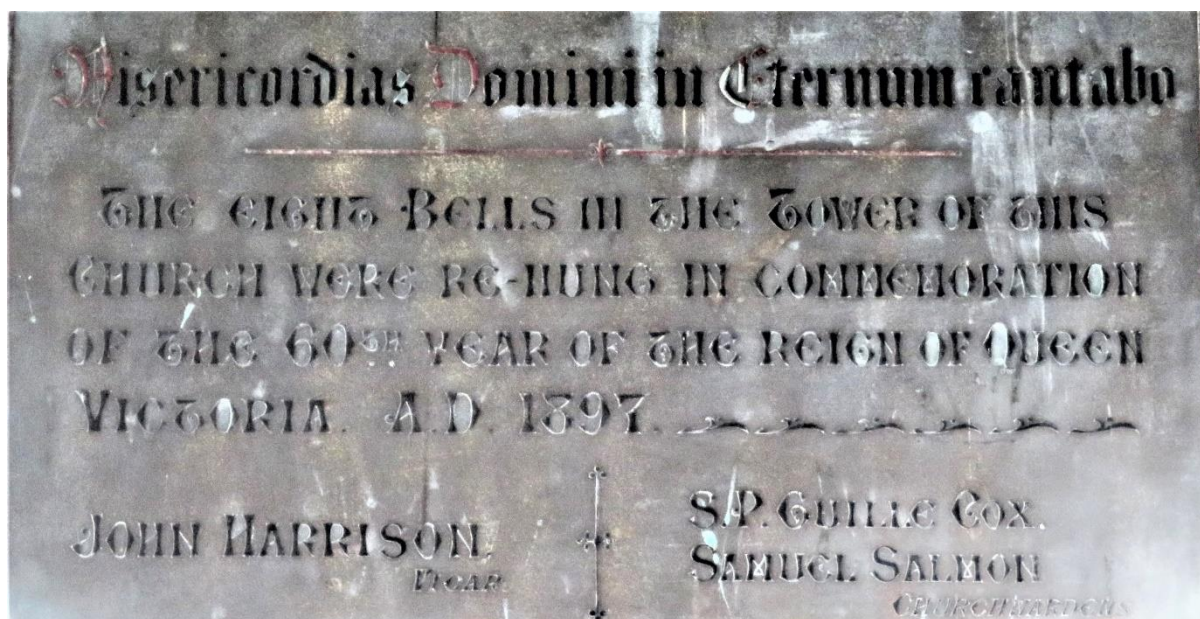 Misericordias Domini in Eternum cantabo
THE EIGHT BELLS IN THE TOWER OF THIS
CHURCH WERE RE-HUNG IN COMMEMORATION
OF THE 60TH YEAR OF THE REIGN OF QUEEN
VICTORIA. A.D. 1897.
JOHN HARRISON,
VICAR.
S.P. GUILLE COX.
SAMUEL SALMON
CHURCHWARDENS